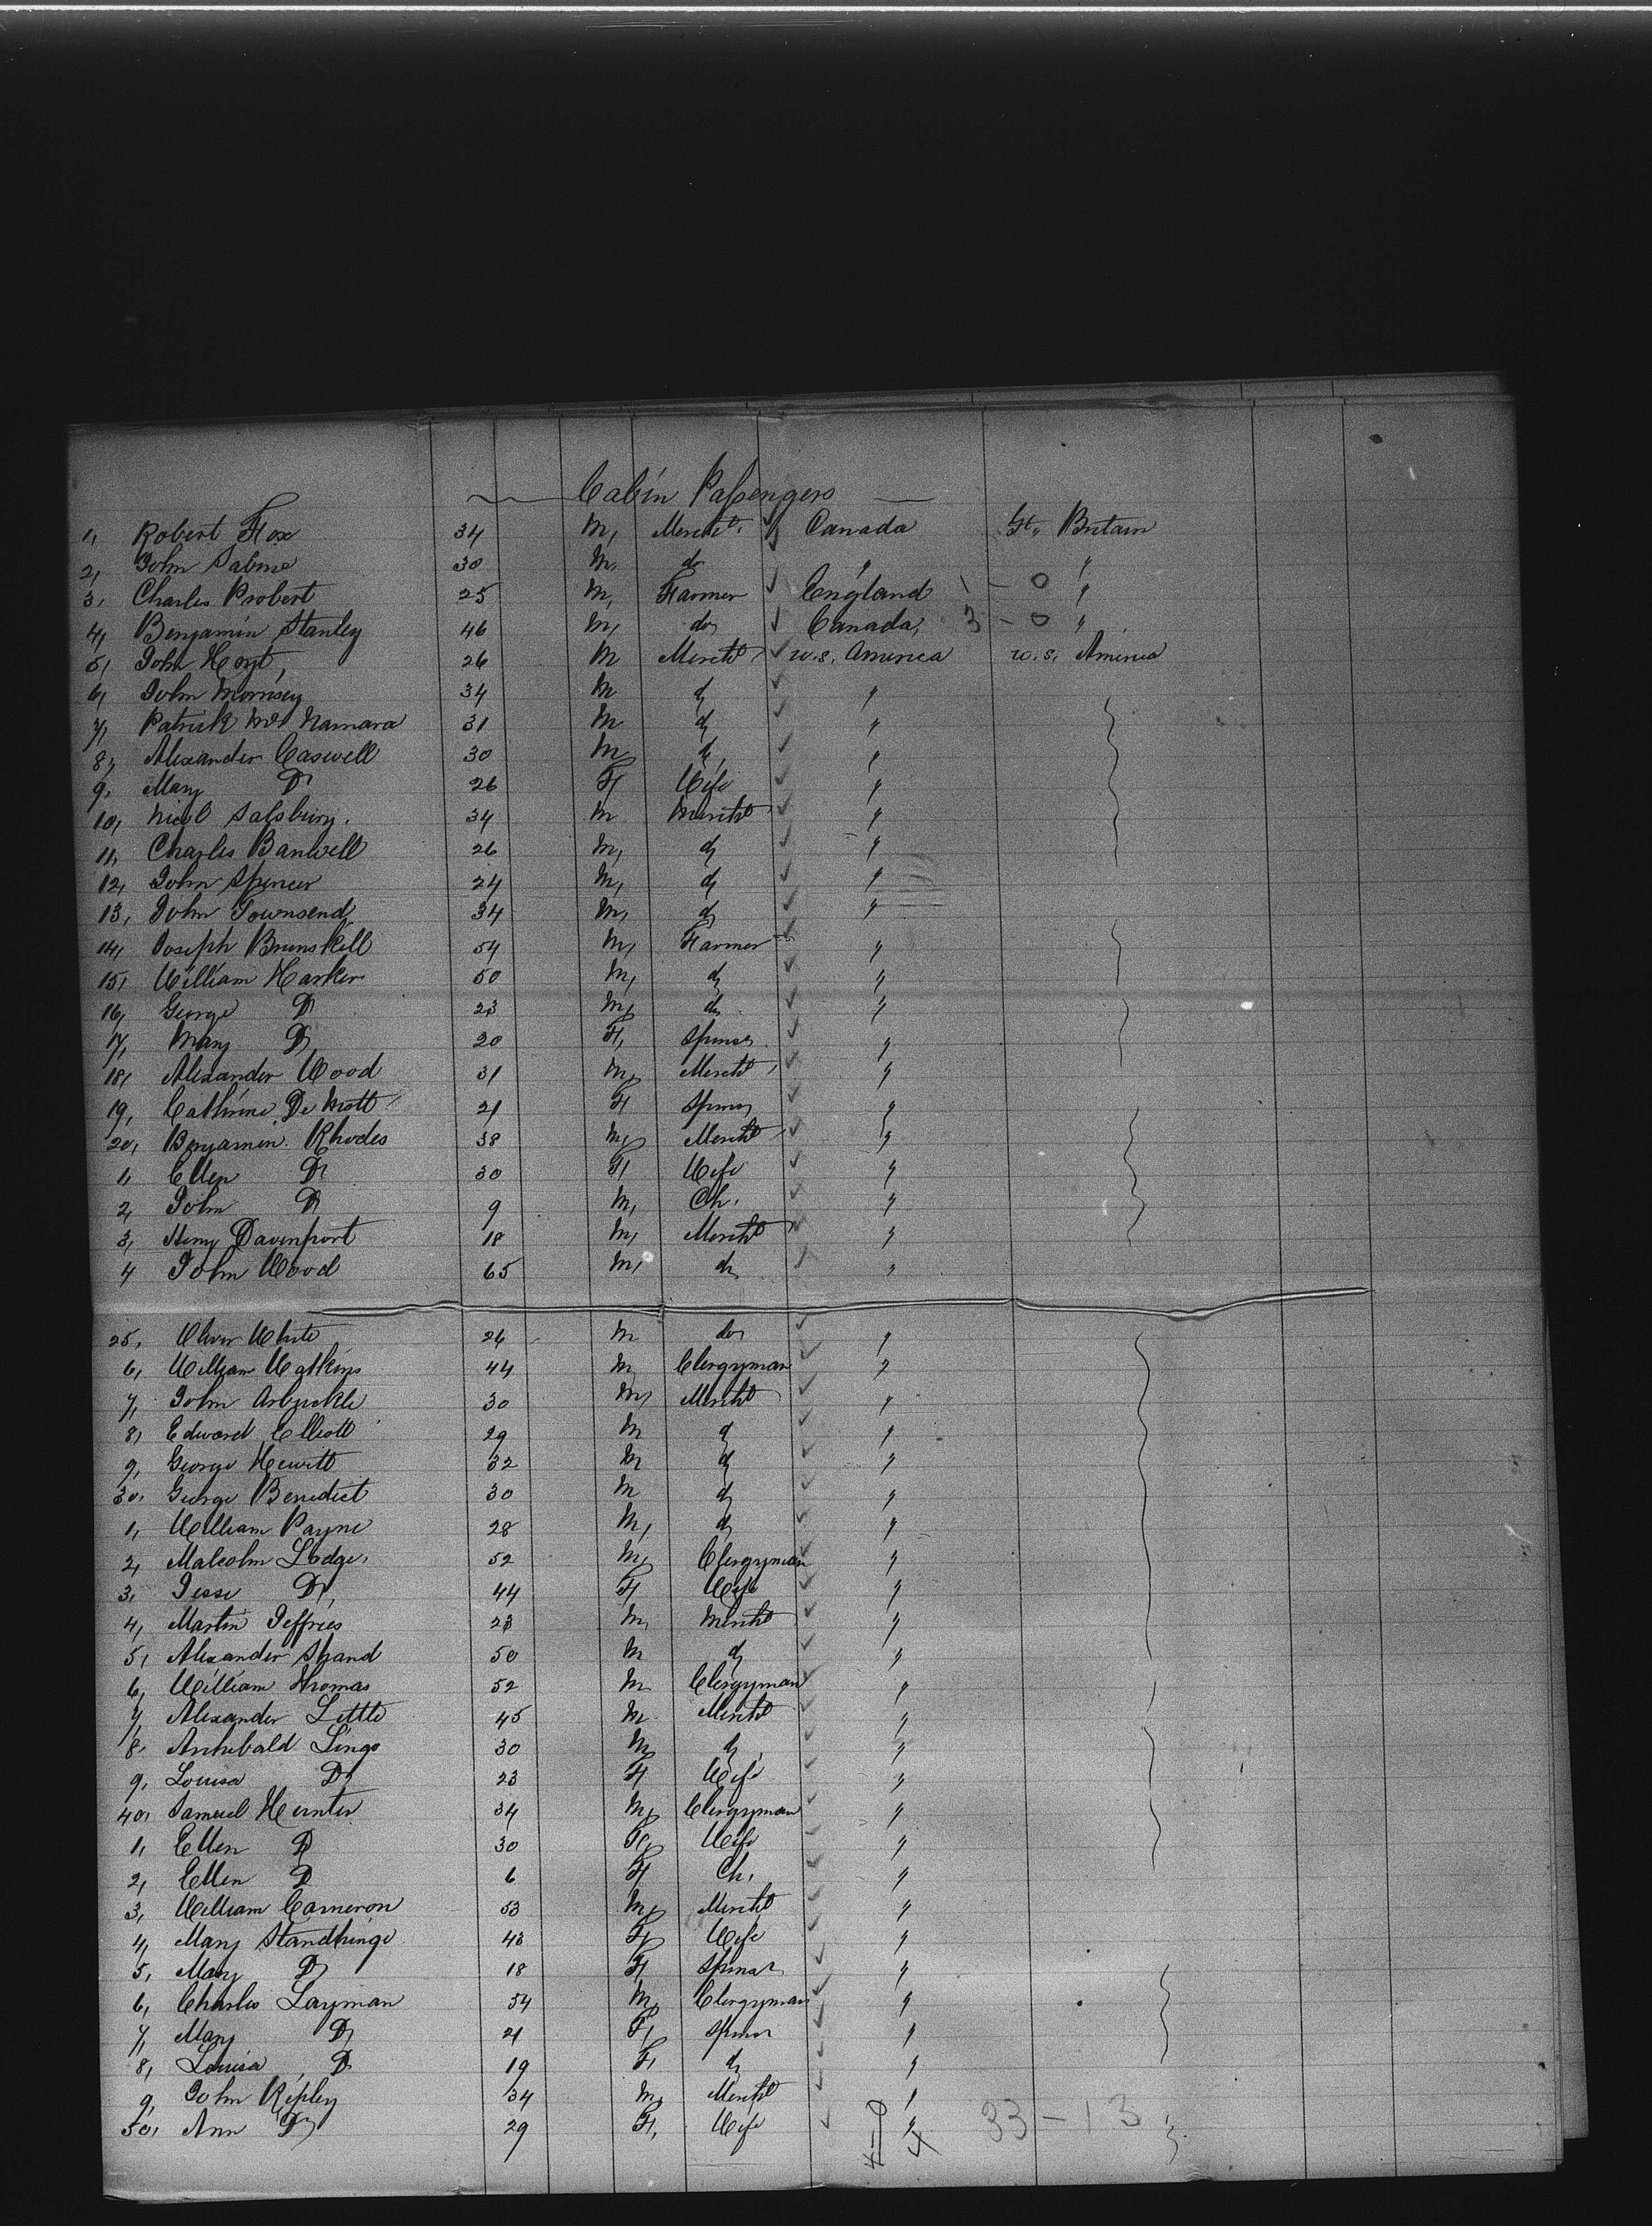 Cabin Passengers
1, Robert Fox 34 M, Mercht. Canada Gt. Britain
2, John Sabine 30 M, do " "
3, Charles Probert 25 M, Farmer England 1 - 0 "
4, Benjamin Stanley 46 M, do Canada, 3 - 0 "
5, John Hoyt, 26 M Mercht U.S. America U.S. America
6, John Morrisey 34 M do "
7, Patrick Mc Namara 31 M do "
8, Alexander Caswell 30 M do "
9, Mary Do 26 F Wife "
10, Nicol Salsbury. 34 M Mercht "
11, Charles Banwell 26 M, do "
12, John Spencer 24 M, do "
13, John Townsend 34 M, do "
14, Joseph Brunskill 54 M, Farmer "
15, William Harker 50 M, do "
16, George Do 23 M, do "
17, Mary Do 20 F, Spinsr "
18, Alexander Wood 31 M, Mercht "
19, Cathrine De Mott 21 F Spinsr "
20, Benjamin Rhodes 38 M, Mercht "
1, Ellen Do 30 F Wife "
2, John Do 9 M, Ch. "
3, Henry Davenport 18 M, Mercht "
4 John Wood 65 M, do "
25, Oliver White 26 M do "
6, William Watkins 44 M, Clergyman "
7, John Arbuckle 30 M, Mercht "
8, Edward Elliott 29 M do "
9, George Hewitt 32 M do "
30, George Benedict 30 M do "
1, William Payne 28 M, do "
2, Malcolm Lodge, 52 M, Clergyman "
3, Jesse Do 44 F Wife "
4, Martin Jeffries 23 M, Mercht "
5, Alexander Shand 50 M do "
6, William Thomas 52 M Clergyman "
7, Alexander Little 45 M Mercht "
8, Archibald Lingo 30 M do "
9, Louisa Do 23 F Wife "
40, Samuel Hunter 34 M, Clergyman "
1, Ellen Do 30 F, Wife "
2, Ellen Do 6 F Ch, "
3, William Cameron 53 M, Mercht "
4, Mary Standringe 43 F, Wife "
5, Mary Do 18 F, Spinsr "
6, Charles Layman 54 M, Clergyman "
7, Mary Do 21 F, Spinsr "
8, Louisa Do 19 F, do "
9, John Ripley 34 M, Mercht "
50, Ann Do 29 F, Wife " 33 - 13